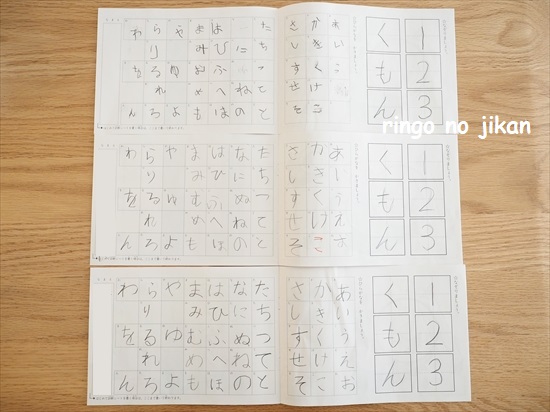 ringo no jikan
123
くもん
あいう
かきくけこ
さしすせそ
たちてと
にねの
はひふへほ
まみむめも
やゆよ
らりるれろ
わをん
123
くもん
あいうえお
かきくけこ
さしすせそ
たちつてと
なにぬねの
はひふへほ
まみむめも
やゆよ
らりるれろ
わをん
123
くもん
あいうえお
かきくけこ
さしすせそ
たちつてと
なにぬねの
はひふへほ
まみむめも
やゆよ
らりるれろ
わをん